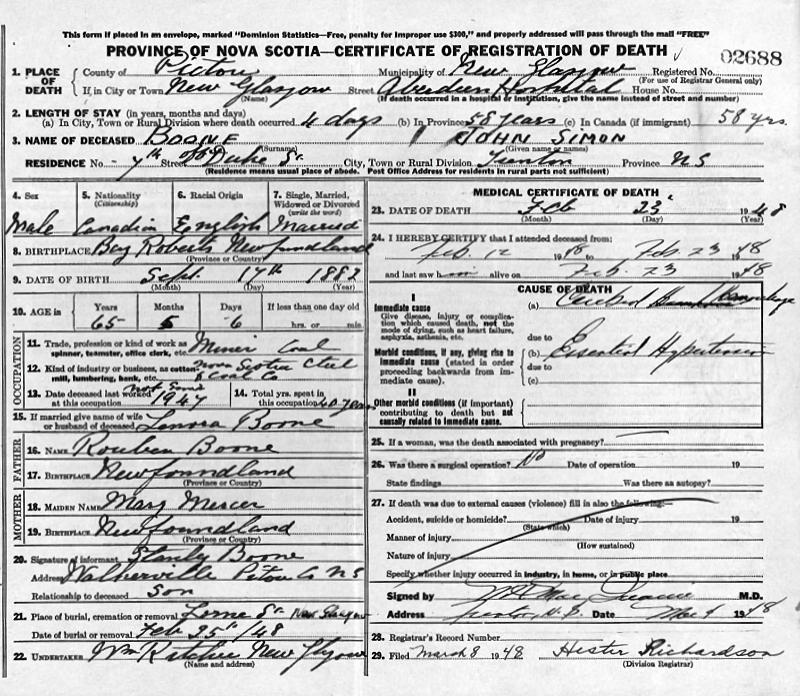 This form if placed in an envelope, marked "Dominion Statistics—Free, penalty for improper use $300," and properly addressed will pass through the mail "FREE"
PROVINCE OF NOVA SCOTIA—CERTIFICATE OF REGISTRATION OF DEATH
02688
1. PLACE OF DEATH County of Pictou Municipality of New Glasgow Registered No.
(For use of Registrar General only)
If in City or Town New Glasgow Street Aberdeen Hospital House No.
(Name) (If death occurred in a hospital or institution, give the name instead of street and number)
2. LENGTH OF STAY (in years, months and days)
(a) In City, Town or Rural Division where death occurred 4 days (b) In Province 58 years (c) In Canada (if immigrant) 58 yrs.
3. NAME OF DECEASED BOONE JOHN SIMON
(Surname) (Given name or names)
RESIDENCE No. - 7th Street Duke St City, Town or Rural Division Trenton Province NS
(Residence means usual place of abode. Post Office Address for residents in rural parts not sufficient)
4. Sex 5. Nationality 6. Racial Origin 7. Single, Married,
(Citizenship) Widowed or Divorced
(write the word)
Male Canadian English Married
8. BIRTHPLACE Bay Roberts Newfoundland
(Province or Country)
9. DATE OF BIRTH Sept. 17th 1882
(Month) (Day) (Year)
10. AGE IN Years Months Days If less than one day old
65 5 6 hrs. or min.
OCCUPATION
11. Trade, profession or kind of work as Miner Coal
spinner, teamster, office clerk, etc.
12. Kind of industry or business, as cotton Nova Scotia Steel
mill, lumbering, bank, etc. & Coal Co
13. Date deceased last worked
at this occupation 1947
14. Total yrs. spent in
this occupation 40 years
15. If married give name of wife
or husband of deceased Lenora Boone
FATHER
16. NAME Rouben Boone
17. BIRTHPLACE Newfoundland
(Province or Country)
MOTHER
18. MAIDEN NAME Mary Mercer
19. BIRTHPLACE Newfoundland
(Province or Country)
20. Signature of informant Stanly Boone
Address Walkerville Pitou Co NS
Relationship to deceased Son
21. Place of burial, cremation or removal Lorne St New Glasgow
Date of burial or removal Feb 25 /48
22. UNDERTAKER Wm Ritchie New Glasgow
(Name and address)
MEDICAL CERTIFICATE OF DEATH
23. DATE OF DEATH Feb 23 1948
(Month) (Day) (Year)
24. I HEREBY CERTIFY that I attended deceased from:
Feb. 12 1948 to Feb. 23 1948
and last saw him alive on Feb. 23 1948
CAUSE OF DEATH
I
Immediate cause (a) Cerebral Hemorrhage
Give disease, injury or complication which caused death, not the mode of dying, such as heart failure, asphyxia, asthenia, etc.
due to
Morbid conditions, if any, giving rise to immediate cause (stated in order proceeding backwards from immediate cause).
(b) Essential Hypertension
due to
(c)
II
Other morbid conditions (if important) contributing to death but not causally related to immediate cause.
25. If a woman, was the death associated with pregnancy?
26. Was there a surgical operation? No Date of operation 19
State findings Was there an autopsy?
27. If death was due to external causes (violence) fill in also the following:—
Accident, suicide or homicide? Date of injury 19
(State which)
Manner of injury
(How sustained)
Nature of injury
Specify whether injury occurred in industry, in home, or in public place
Signed by M.D.
Address Date 1948
28. Registrar's Record Number
29. Filed March 8 1948 Hester Richardson
(Division Registrar)